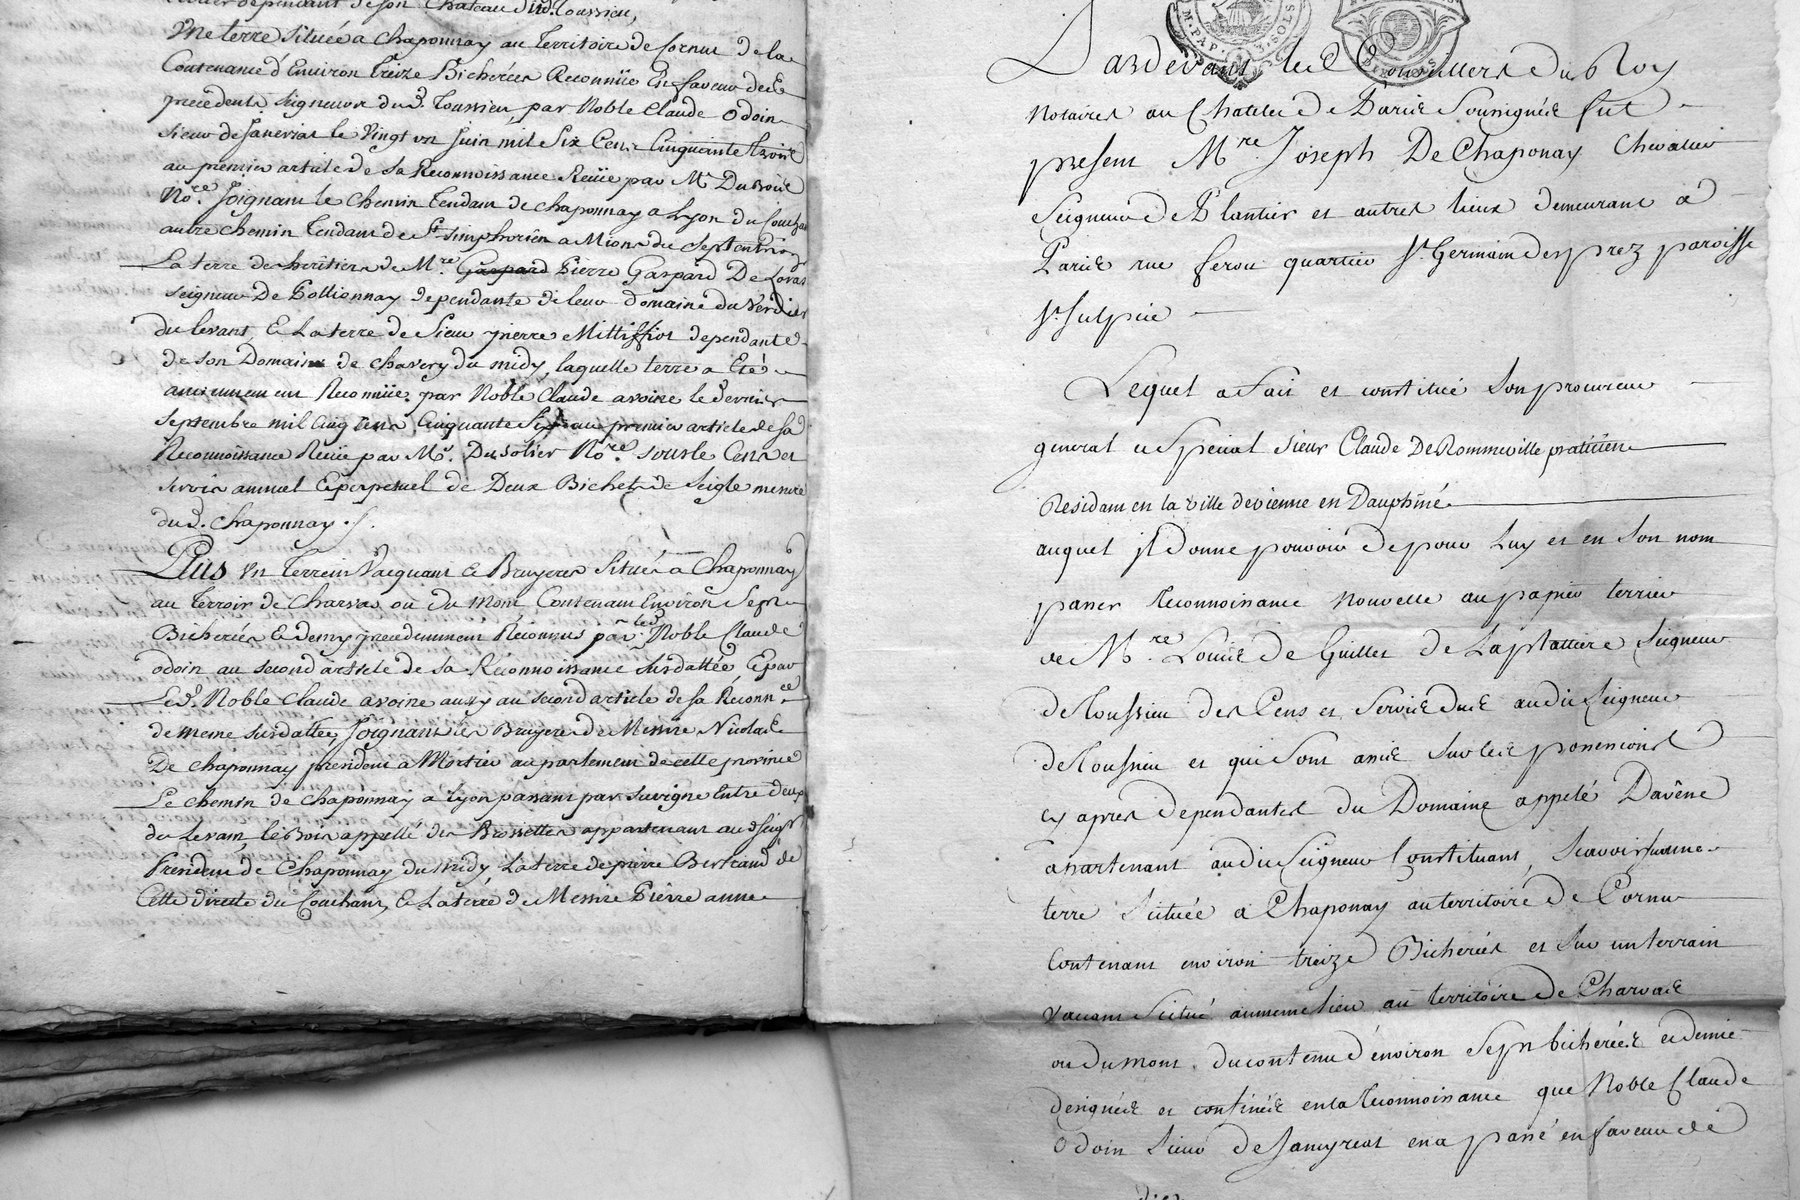 dependant de son Chateau dud. Toussieu,
Une terre Située a Chaponnay au Territoire de Cornu de la
Contenance d'Environ Treize Bicherées Reconnüe En faveur des
precedents Seigneurs dud. Toussieu, par Noble Claude Odoin
sieur de Janeyriat le Vingt un Juin mil Six Cent Cinquante trois
au premier article de sa Reconnoissance Reçüe par Me Dubois
Nore. Joignant le Chemin Tendant de Chaponnay a Lyon du Couchant
autre Chemin Tendant de St. Simphorien a Mions du Septentrion
La terre des heritiers de Mre. Gaspard Pierre Gaspard De Loras
seigneur De Pollionnay dependante de leur domaine du Verdier
du levant, & La terre de Sieur pierre Mittiffiot dependante
de son Domaine de Chavery du midy, laquelle terre a Eté
anciennement Reconnüe par Noble Claude avoine le dernier
septembre mil Cinq Cens Cinquante Six au premier article de sa
Reconnoissance Reçüe par Me. Dusolier Nore. sous le Cens et
servis annuel & perpetuel de Deux Bichets de Seigle mesure
dud. Chaponnay ./.
Plus Un Terrein Vacquant & Bruyeres Situés a Chaponnay
au Terroir de Charvas ou du Mont Contenant Environ Sept
Bicherées & demy precedemment Reconnus par led. Noble Claude
odoin au second article de sa Reconnoissance susdattée & par
Led. Noble Claude avoine aussy au second article de sa Reconnce
de meme susdattée, Joignant les Bruyeres de Messire Nicolas
De Chaponnay president a Mortier au parlement de cette province
Le chemin de Chaponnay a Lyon passant par Suvigne Entre deux
du Levant, le Bois appellé des Brossettes appartenant aud Seigr
President de Chaponnay du midy La terre de pierre Bertrand de
Cette directe du Couchant, & La terre de Messire Pierre anne
Pardevant les Conseillers du Roy
Notaires au Chatelet de Paris Soussignés fut
present Mre Joseph De Chaponay Chevalier
Seigneur de Plantier et autres lieux demeurant a
Paris rue ferou quartier St. Germain des prez paroisse
St. Sulpice
Lequel a Fait et constitué Son procureur
general et Special Sieur Claude De Rommeville praticien
Residant en la ville de vienne en Dauphiné
auquel Il donne pouvoir de pour Luy et en Son nom
passer Reconnoissance Nouvelle au papier terrier
de Mre. Louis De Guillet de Laplattiere Seigneur
de Toussieu des Cens et Servis dus audit Seigneur
de Toussieu et qui Sont assis Sur les possessions
cy apres dependantes du Domaine appelé Davêne
apartenant audit Seigneur Constituant, Scavoir Sur une
terre Scituée a Chaponay au territoire de Cornu
Contenant environ treize Bicherées et Sur un terrain
vacant Scitué au meme lieu au territoire de Charvas
ou du mont du contenu d'environ Sept bicherées et demie
designées et confinées en la Reconnoissance que Noble Claude
Odoin Sieur de Janeyreat en a passé en faveur de